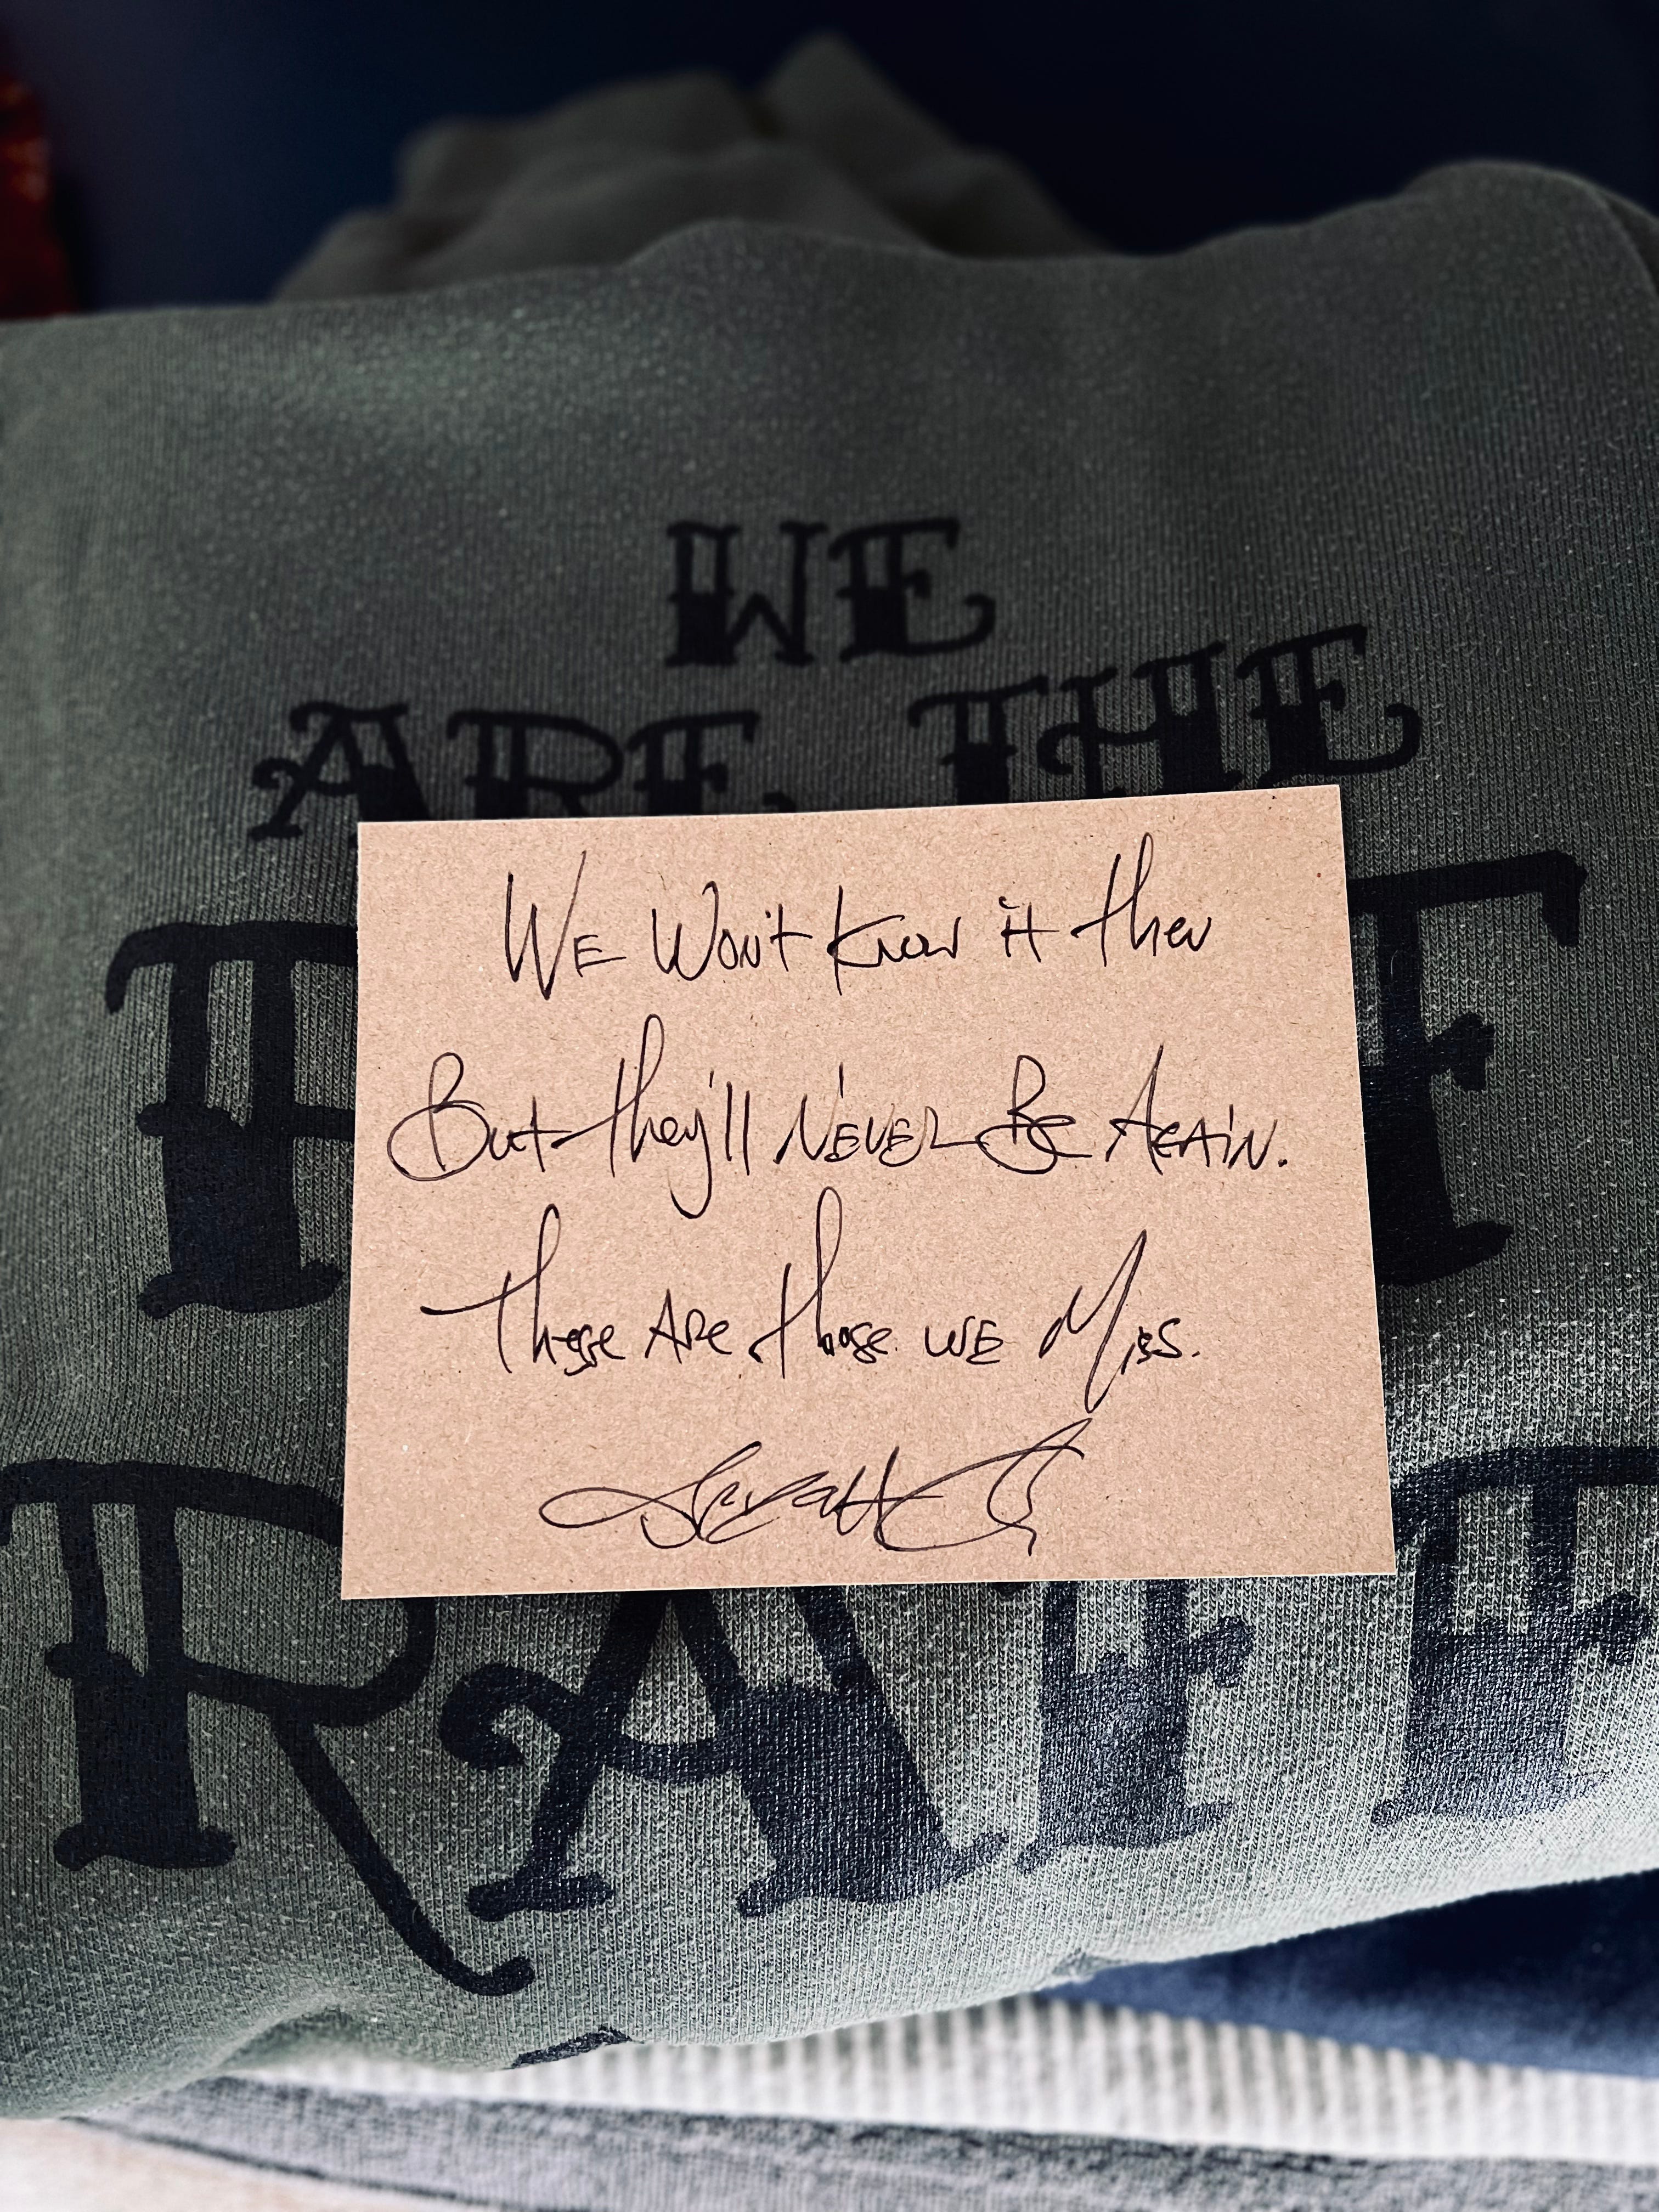 WE
ARE THE
We Won't Know it then
But they'll Never Be Again.
These Are those we Miss.